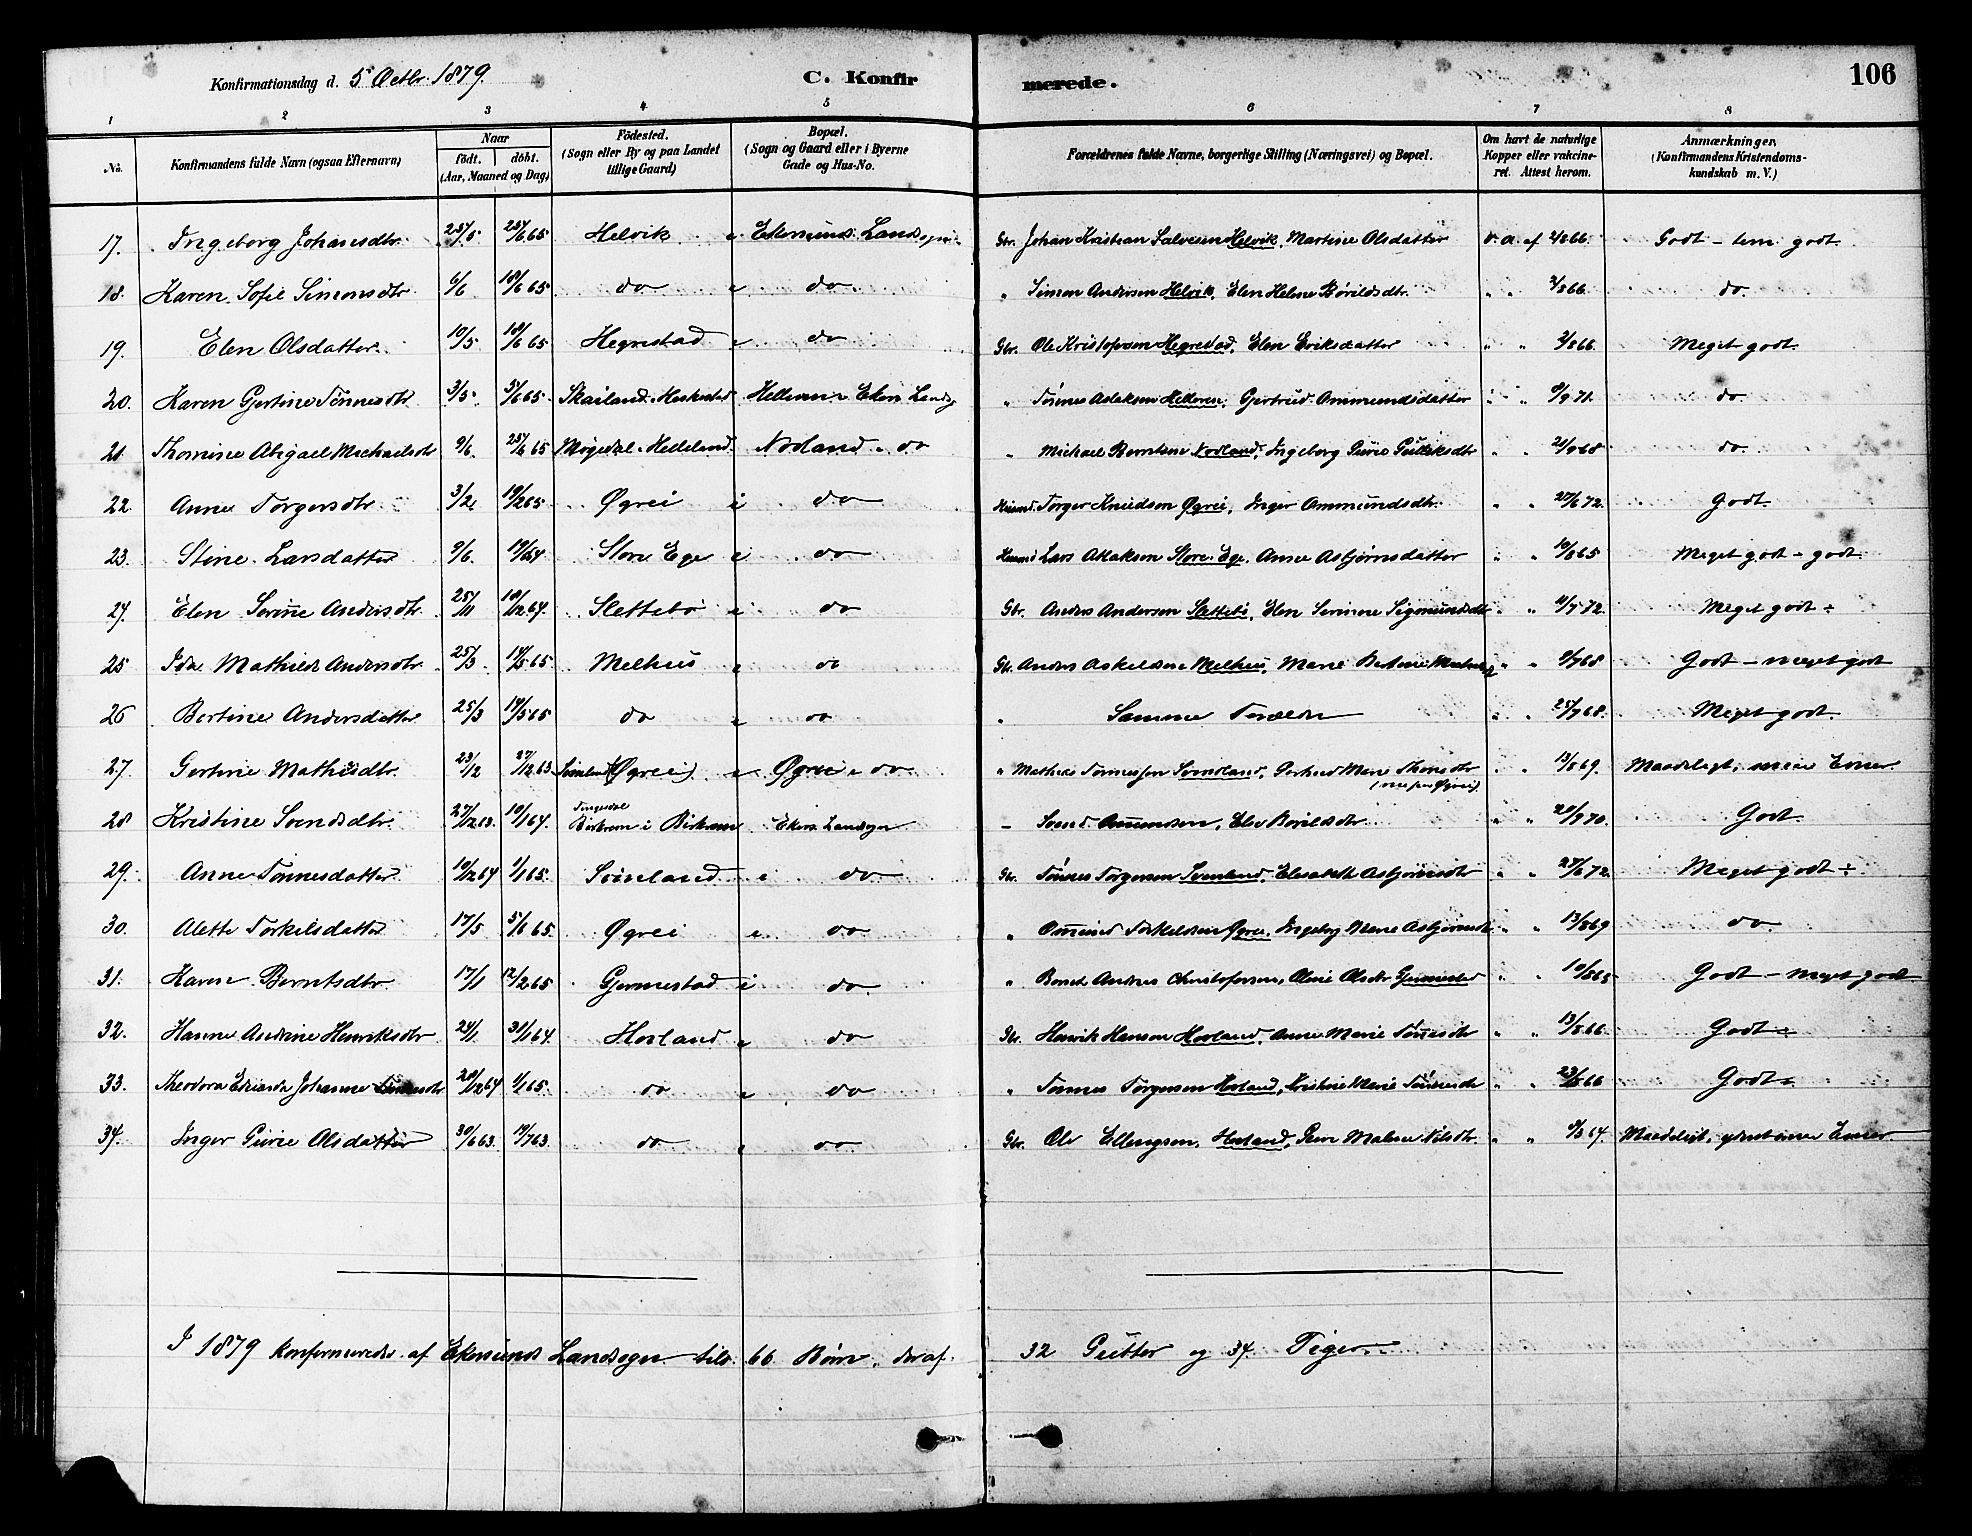 Konfirmationsdag d. 5 Octbr. 1879. C. Konfirmerede. 106
1 2 3 4 5 6 7 8
No. Konfirmandens fulde Navn (ogsaa Efternavn) Naar födt. döbt. (Aar, Maaned og Dag) Födested. (Sogn eller By og paa Landet tillige Gaard) Bopæl. (Sogn og Gaard eller i Byerne Gade og Hus-No. Forældrenes fulde Navne, borgerlige Stilling (Næringsvei) og Bopæl. Om havt de naturlige Kopper eller vakcineret. Attest herom. Anmærkninger, (Konfirmandens Kristendomskundskab m. V.)
17. Ingeborg Johansdtr. 25/5 25/6 65 Helvik " Ekersunds Landsogn Gbr. Johan Kristian Salvesen Helvik, Martine Olsdatter v. a. af 2/8 66. Godt - tem. godt.
18. Karen Sofie Simonsdtr 6/6 18/6 65 do " do. " Simon Andersen Helvik, Elen Helene Bårildsdtr. " " 2/8 66. do.
19. Elen Olsdatter. 10/5 18/6 65 Hegrestad " do Gbr. Ole Kristofersen Hegrestad, Elen Eriksdatter " " 2/8 66. Meget godt.
20. Karen Gjertine Tönnesdtr 3/5 5/6 65 Skailand. Heskestad Helleren. Ekers Landsg " Tönnes Aslaksen Helleren, Gjertrud Ammundsdatter " " 8/9 71. do.
21. Thomine Abigael Michaelsdtr 9/6 25/6 65 Møgedal. Helleland. Nodland " do " Michael Berntsen Nodland, Ingeborg Gurie Gulleiksdtr " " 21/9 68 do
22. Anne Torgersdtr 3/2 19/2 65 Øgrei " do Huusmd. Torger Knudson Øgrei, Inger Ammundsdtr. " " 27/6 72. Godt.
23. Stine Larsdatter 9/6. 19/6 64 Store Ege " do Huusmd Lars Atlaksen Store Ege, Anne Asbjørnsdatter " " 10/8 65 Meget godt - godt.
24. Elen Serine Andersdtr. 25/11 10/12 64 Slettebö " do Gbr. Anders Andersen Slettebö, Elen Serine Sigmundsdtr " " 11/7 72. Meget godt ÷
25 Ida Mathilde Andersdtr. 25/3 14/5 65 Melhus " do Gbr. Anders Askeldsen Melhus, Marie Bertine " " 9/9 68 Godt - meget godt
26 Bertine Andersdatter 25/3 14/5 65 do " do " Samme Forældre " " 25/9 68. Meget godt.
27. Gertine Mathisdtr. 23/12 27/12 63 Svindland (Øgrei) " Øgrei " do " Mathias Tønnessen Svindland, Gertrud Marie Thorsdtr (nu paa Øgrei) " " 13/8 69. Maadeligt, smaa Evner.
28 Kristine Svendsdtr. 27/12 63. 10/1 64. Tengesdal Birkrem i Birkrem Ekers. Landsogn - Svend Amundsen, Elen Bårildsdtr. " " 20/9 70. Godt.
29. Anne Tønnesdatter. 10/12 64 1/1 65. Svinland " do Gbr. Tönnes Torgersen Svinland, Elisabeth Asbjörnsdtr " " 27/6 72. Meget godt ÷
30. Alette Torkelsdatter 17/5 5/6 65. Øgrei " do " Ommund Torkelsen Øgrei, Ingeborg Marie Asbjørnsdtr " " 13/8 69 do.
31. Karen Berntsdtr. 17/1 12/2 65 Gjermestad i do. " Bernt Andreas Christofersen, Olene Olsdtr Gjermestad " " 10/8 65 Godt - meget godt
32. Hanne Andrine Henriksdtr 24/1. 31/1 64. Hovland " do Gbr. Henrik Hansen Hovland, Anne Marie Tönnesdtr " " 13/8 66. Godt ÷
33. Theodora Johanne 20/12 64 1/1 65. do " do " Tønnes Torgersen Hovland, Kristine Marie Tönnesdtr " " 23/8 66 Godt ÷
34. Inger Gurie Olsdatter 30/6 63. 19/7 63. do " do Gbr. Ole Ellingsen Hovland, Gurie Malene Nilsdtr. " " 9/8 64. Maadeligt, Evner.
I 1879 konfirmerede af Ekersunds Landsogn tils. 66 Børn, deraf 32 Gutter og 34 Piger.